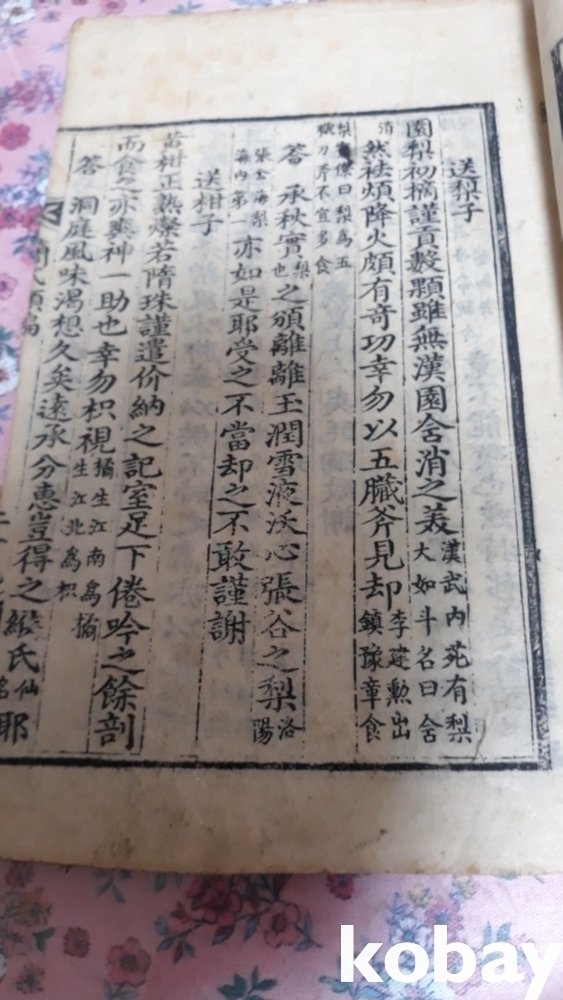 送梨子
園梨初摘謹貢數顆雖無漢園含消之美漢武内苑有梨大如斗名曰含
消然祛煩降火頗有奇功幸勿以五臟斧見却李建勲出鎮豫章食
梨賓僚曰梨為五臟刀斧不宜多食
答 承秋實梨也之頒離離玉潤雪液沃心張谷之梨洛陽
張公梨海内第一亦如是耶受之不當却之不敢謹謝
送柑子
黄柑正熟燦若隋珠謹遣价納之記室足下倦吟之餘剖
而食之亦爽神一助也幸勿枳視橘生江南為橘生江北為枳
答 洞庭風味渴想久矣遠承分惠豈得之緱氏仙名耶
kobay